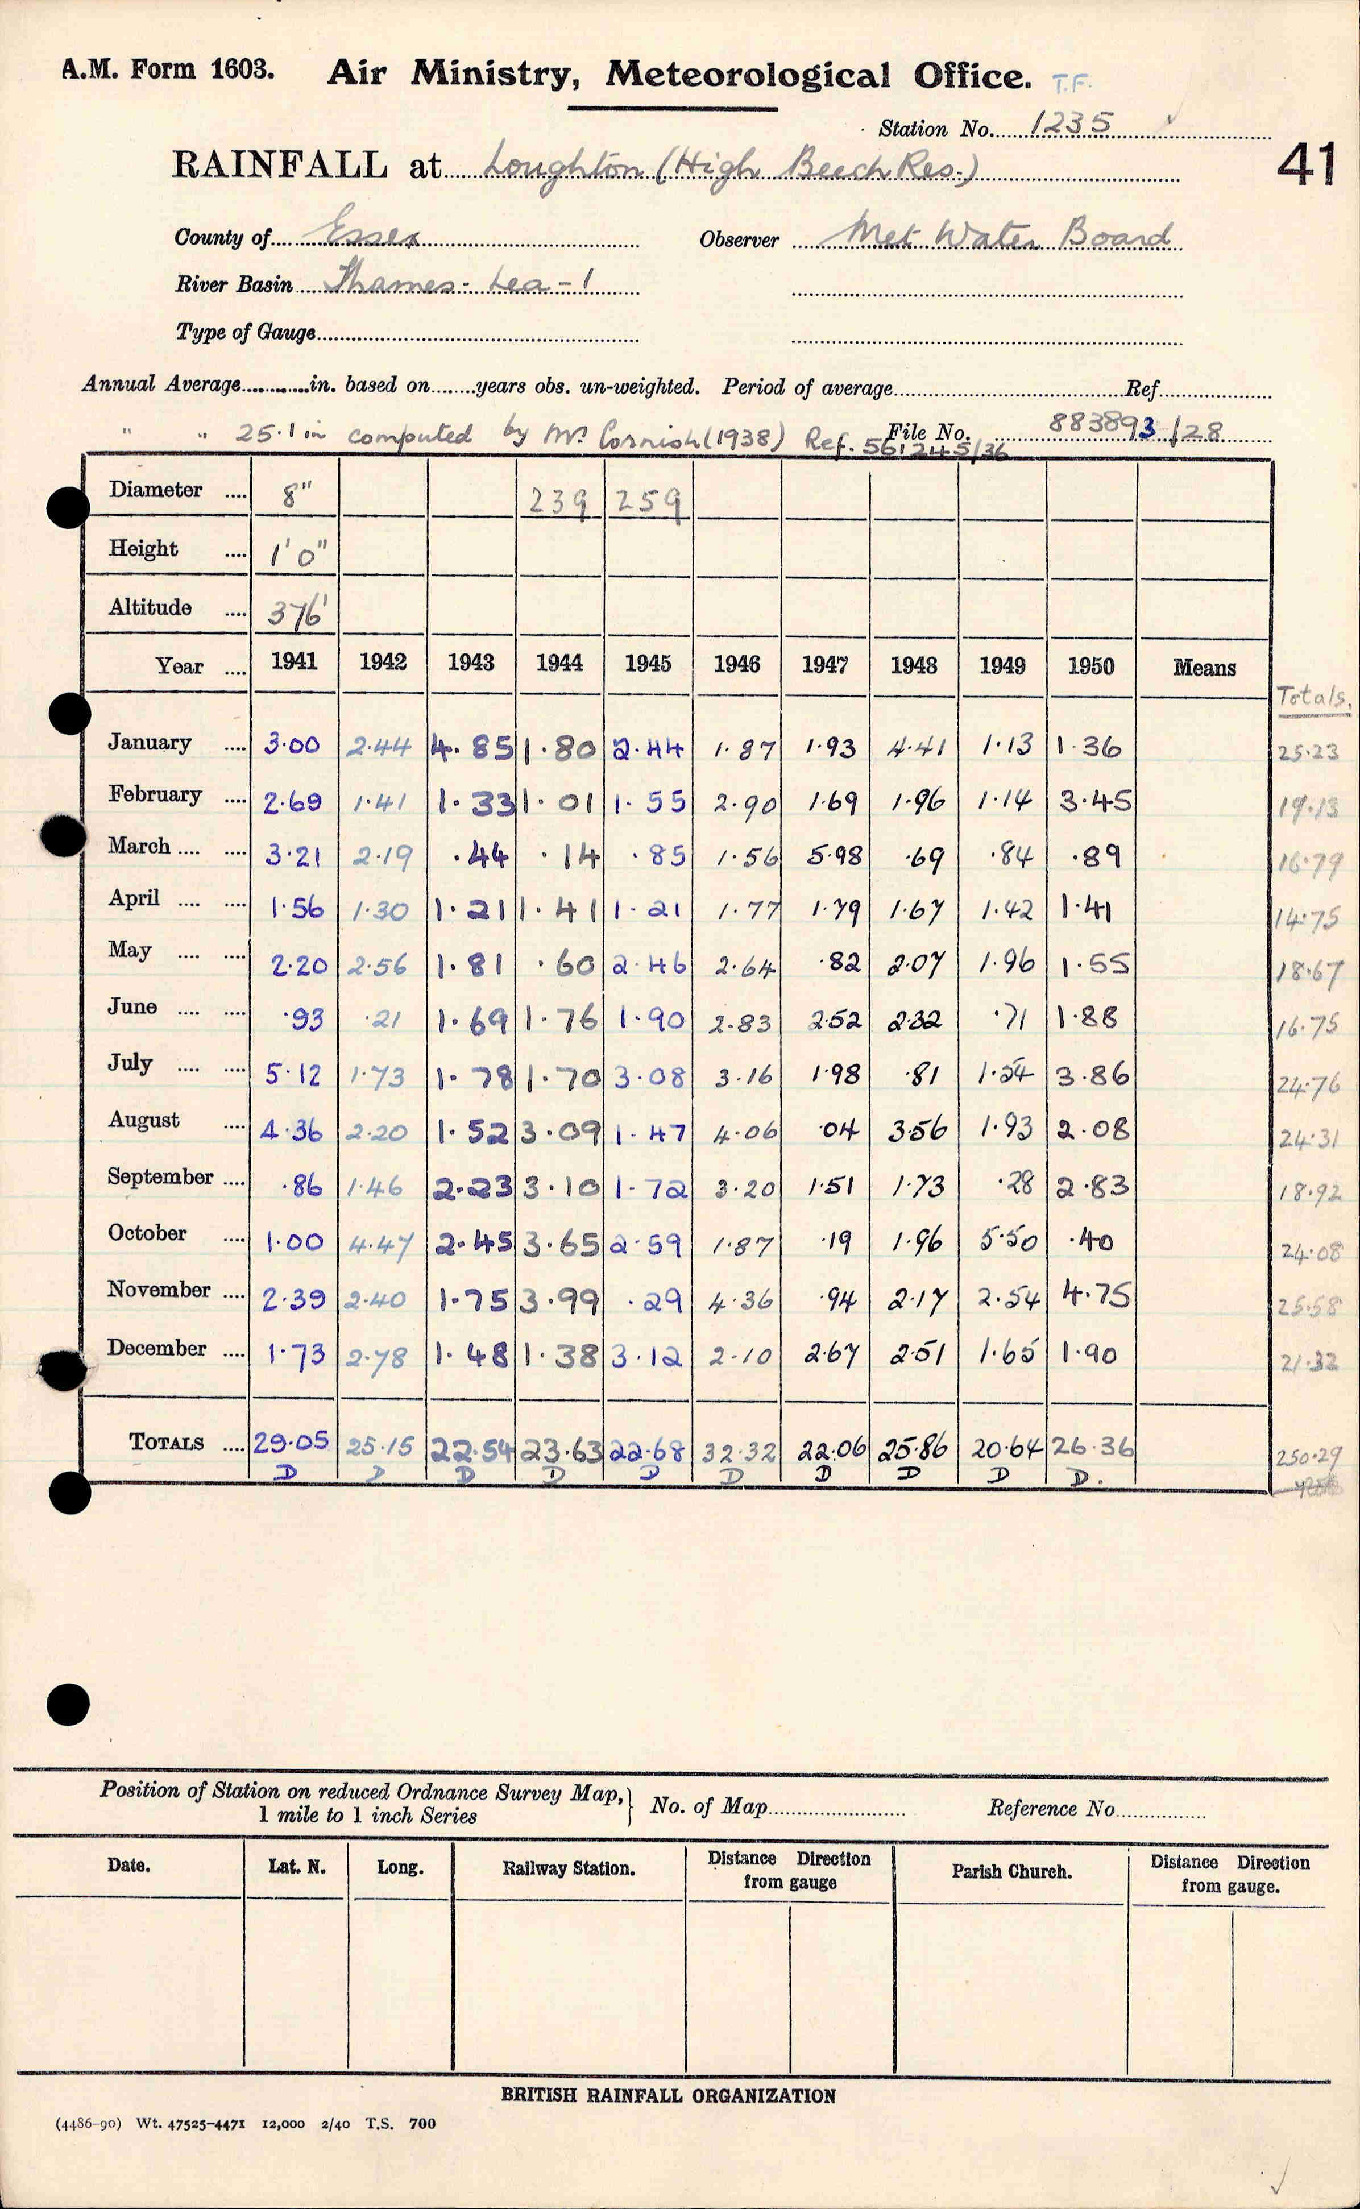 A.M. Form 1603. Air Ministry, Meteorological Office. T.F.
Station No. 1235
41
RAINFALL at Loughton (High Beech Res.)
County of Essex Observer Met Water Board
River Basin Thames - Lea - 1
Type of Gauge
Annual Average in. based on years obs. un-weighted. Period of average Ref
" " 25.1 in computed by Mr Cornish (1938) Ref. 561245/36 File No. 883893/28
Diameter 8" 239 259
Height 1' 0"
Altitude 376'
Year 1941 1942 1943 1944 1945 1946 1947 1948 1949 1950 Means Totals.
January 3.00 2.44 4.85 1.80 2.44 1.87 1.93 4.41 1.13 1.36 25.23
February 2.69 1.41 1.33 1.01 1.55 2.90 1.69 1.96 1.14 3.45 19.13
March 3.21 2.19 .44 .14 .85 1.56 5.98 .69 .84 .89 16.79
April 1.56 1.30 1.21 1.41 1.21 1.77 1.79 1.67 1.42 1.41 14.75
May 2.20 2.56 1.81 .60 2.46 2.64 .82 2.07 1.96 1.55 18.67
June .93 .21 1.69 1.76 1.90 2.83 2.52 2.32 .71 1.88 16.75
July 5.12 1.73 1.78 1.70 3.08 3.16 1.98 .81 1.54 3.86 24.76
August 4.36 2.20 1.52 3.09 1.47 4.06 .04 3.56 1.93 2.08 24.31
September .86 1.46 2.23 3.10 1.72 3.20 1.51 1.73 .28 2.83 18.92
October 1.00 4.47 2.45 3.65 2.59 1.87 .19 1.96 5.50 .40 24.08
November 2.39 2.40 1.75 3.99 .29 4.36 .94 2.17 2.54 4.75 25.58
December 1.73 2.78 1.48 1.38 3.12 2.10 2.67 2.51 1.65 1.90 21.32
TOTALS 29.05 25.15 22.54 23.63 22.68 32.32 22.06 25.86 20.64 26.36 250.29
D D D D D D D D D D.
Position of Station on reduced Ordnance Survey Map,
1 mile to 1 inch Series No. of Map Reference No
Date. Lat. N. Long. Railway Station. Distance Direction from gauge Parish Church. Distance Direction from gauge.
BRITISH RAINFALL ORGANIZATION
(4486-90) Wt. 47525-4471 12,000 2/40 T.S. 700